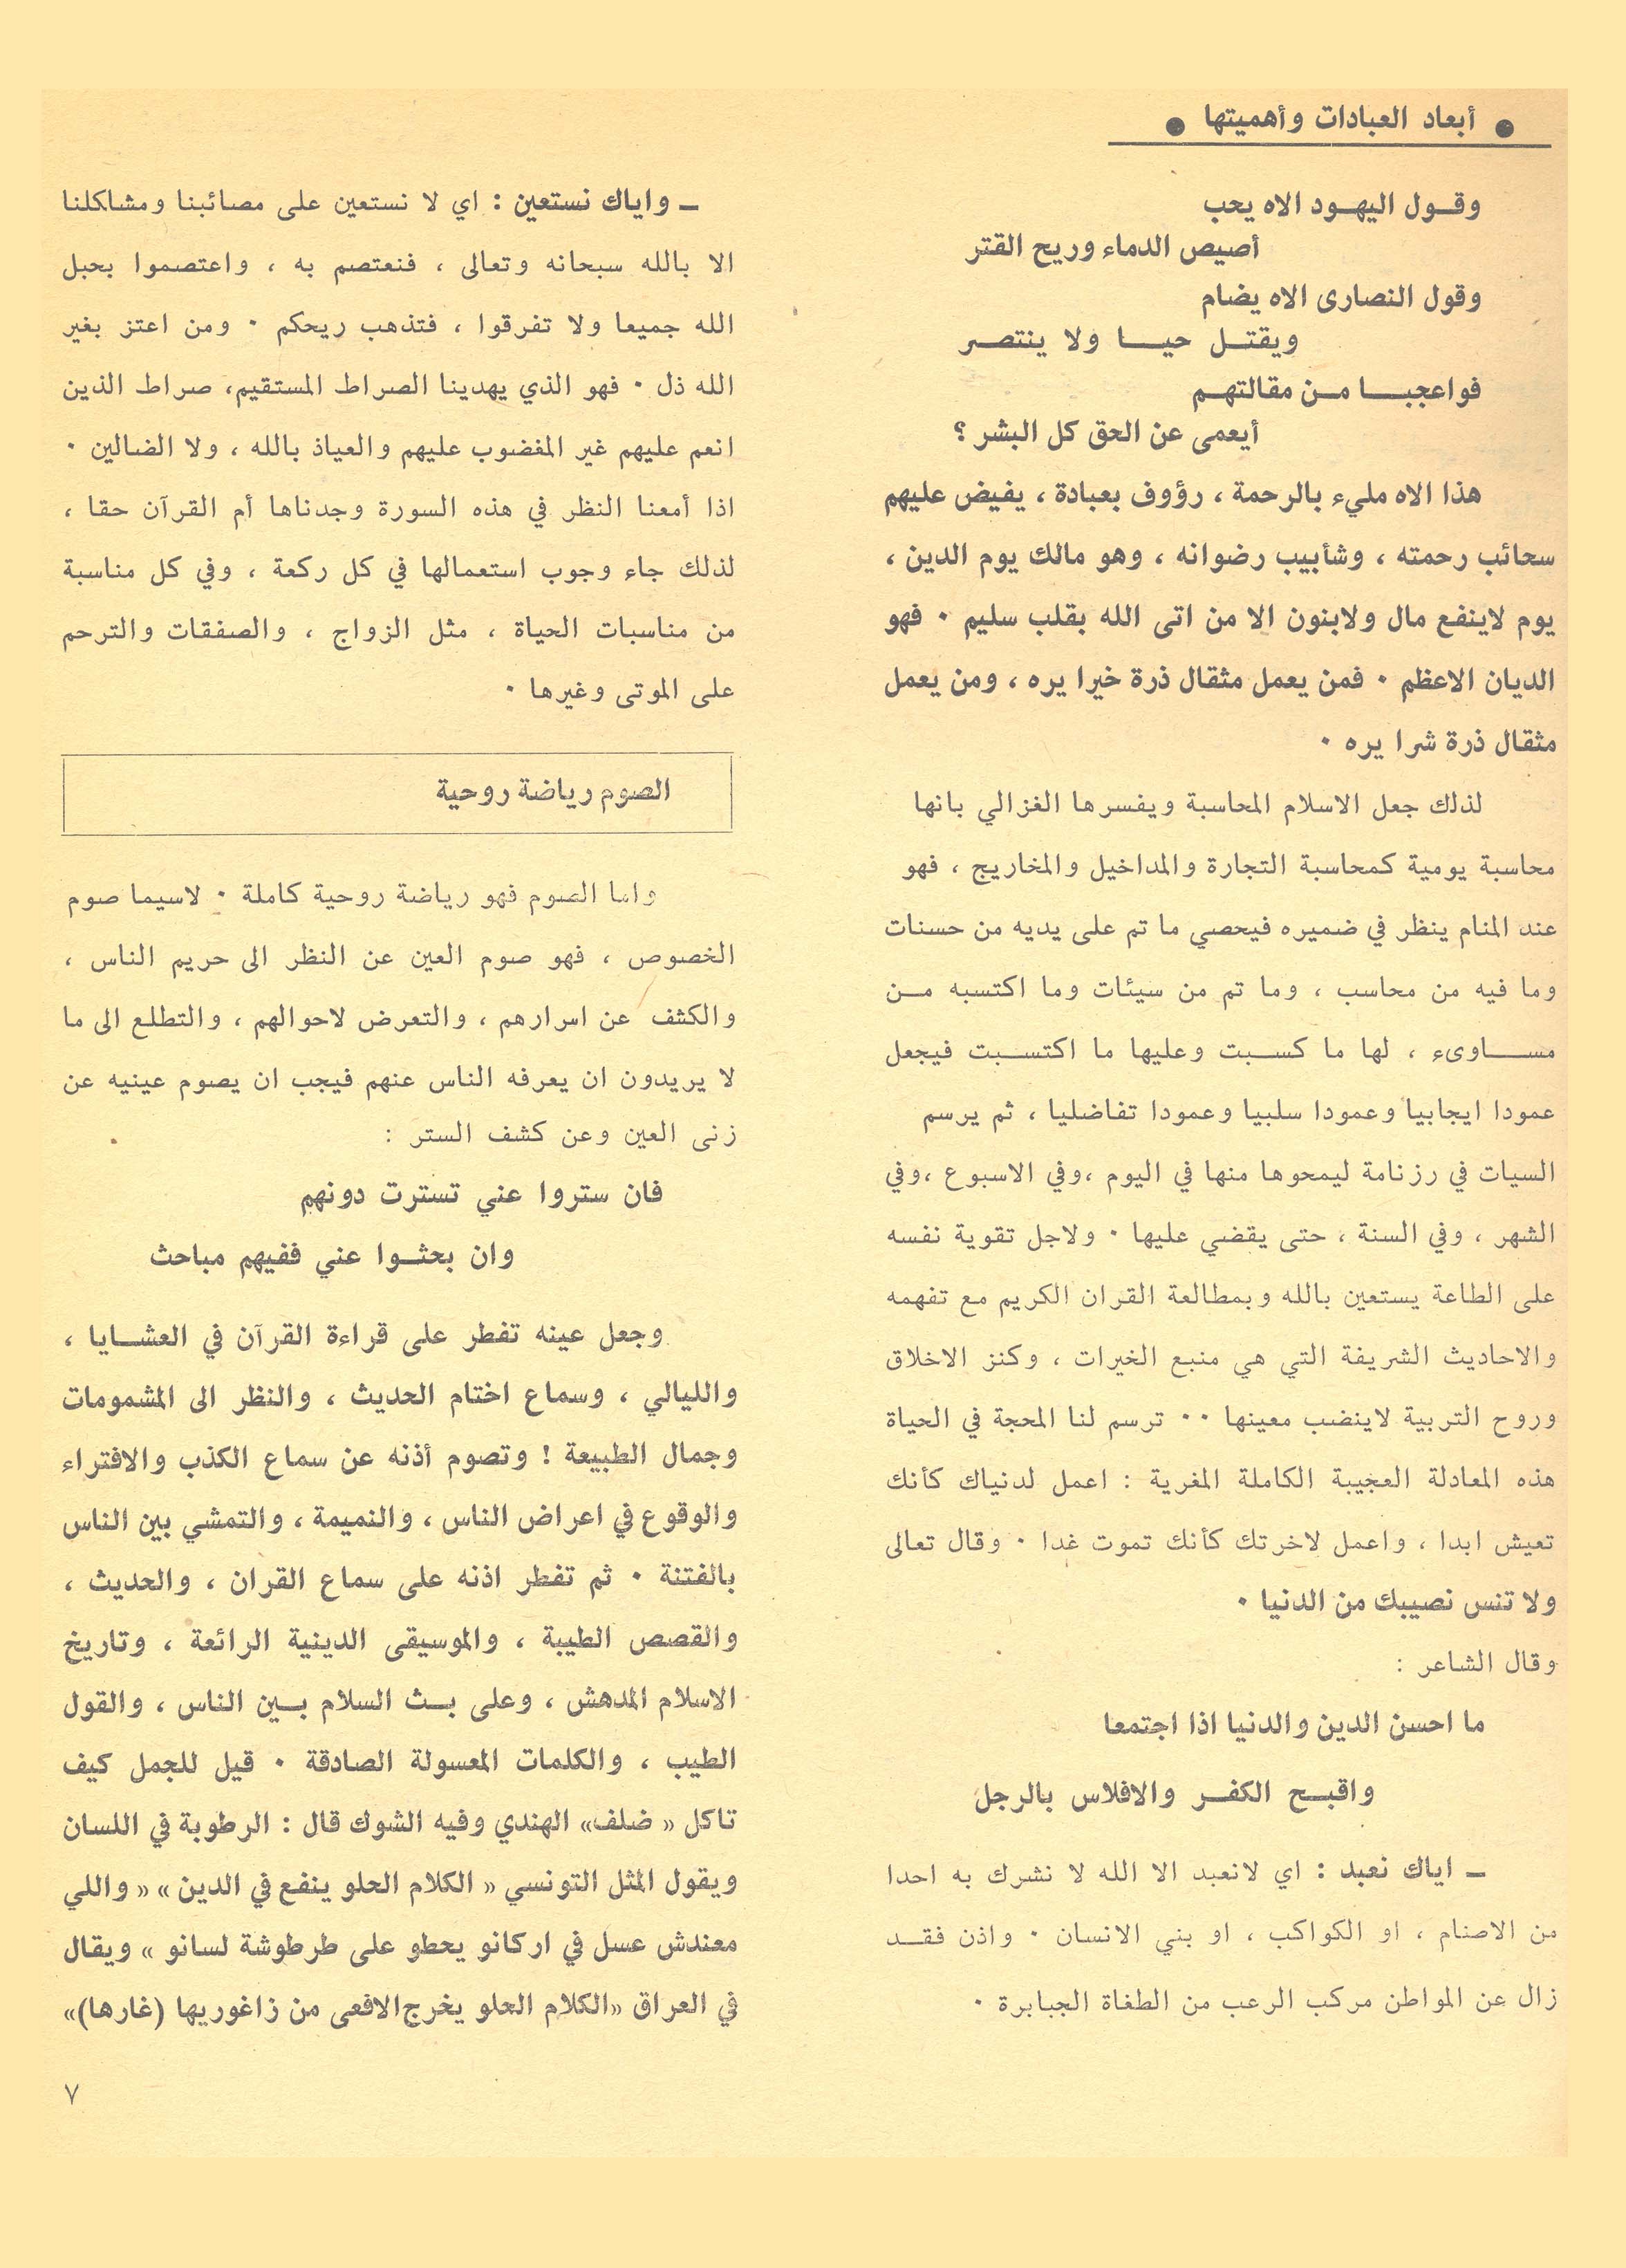 ● أبعاد العبادات وأهميتها ●
وقول اليهود الاه يحب
أصيص الدماء وريح القتر
وقول النصارى الاه يضام
ويقتل حيا ولا ينتصر
فواعجبا من مقالتهم
أيعمى عن الحق كل البشر ؟
هذا الاه مليء بالرحمة ، رؤوف بعبادة ، يفيض عليهم
سحائب رحمته ، وشأبيب رضوانه ، وهو مالك يوم الدين ،
يوم لاينفع مال ولابنون الا من اتى الله بقلب سليم · فهو
الديان الاعظم · فمن يعمل مثقال ذرة خيرا يره ، ومن يعمل
مثقال ذرة شرا يره ·
لذلك جعل الاسلام المحاسبة ويفسرها الغزالي بانها
محاسبة يومية كمحاسبة التجارة والمداخيل والمخاريج ، فهو
عند المنام ينظر في ضميره فيحصي ما تم على يديه من حسنات
وما فيه من محاسب ، وما تم من سيئات وما اكتسبه من
مساوىء ، لها ما كسبت وعليها ما اكتسبت فيجعل
عمودا ايجابيا وعمودا سلبيا وعمودا تفاضليا ، ثم يرسم
السيات في رزنامة ليمحوها منها في اليوم ،وفي الاسبوع ،وفي
الشهر ، وفي السنة ، حتى يقضي عليها · ولاجل تقوية نفسه
على الطاعة يستعين بالله وبمطالعة القران الكريم مع تفهمه
والاحاديث الشريفة التي هي منبع الخيرات ، وكنز الاخلاق
وروح التربية لاينضب معينها ·· ترسم لنا المحجة في الحياة
هذه المعادلة العجيبة الكاملة المغرية : اعمل لدنياك كأنك
تعيش ابدا ، واعمل لاخرتك كأنك تموت غدا · وقال تعالى
ولا تنس نصيبك من الدنيا ·
وقال الشاعر :
ما احسن الدين والدنيا اذا اجتمعا
واقبح الكفر والافلاس بالرجل
ـ اياك نعبد : اي لانعبد الا الله لا نشرك به احدا
من الاصنام ، او الكواكب ، او بني الانسان · واذن فقد
زال عن المواطن مركب الرعب من الطغاة الجبابرة ·
ـ واياك نستعين : اي لا نستعين على مصائبنا ومشاكلنا
الا بالله سبحانه وتعالى ، فنعتصم به ، واعتصموا بحبل
الله جميعا ولا تفرقوا ، فتذهب ريحكم · ومن اعتز بغير
الله ذل · فهو الذي يهدينا الصراط المستقيم، صراط الذين
انعم عليهم غير المغضوب عليهم والعياذ بالله ، ولا الضالين ·
اذا أمعنا النظر في هذه السورة وجدناها أم القرآن حقا ،
لذلك جاء وجوب استعمالها في كل ركعة ، وفي كل مناسبة
من مناسبات الحياة ، مثل الزواج ، والصفقات والترحم
على الموتى وغيرها ·
الصوم رياضة روحية
واما الصوم فهو رياضة روحية كاملة · لاسيما صوم
الخصوص ، فهو صوم العين عن النظر الى حريم الناس ،
والكشف عن اسرارهم ، والتعرض لاحوالهم ، والتطلع الى ما
لا يريدون ان يعرفه الناس عنهم فيجب ان يصوم عينيه عن
زنى العين وعن كشف الستر :
فان ستروا عني تسترت دونهم
وان بحثوا عني ففيهم مباحث
وجعل عينه تفطر على قراءة القرآن في العشايا ،
والليالي ، وسماع اختام الحديث ، والنظر الى المشمومات
وجمال الطبيعة ! وتصوم أذنه عن سماع الكذب والافتراء
والوقوع في اعراض الناس ، والنميمة ، والتمشي بين الناس
بالفتنة · ثم تفطر اذنه على سماع القران ، والحديث ،
والقصص الطيبة ، والموسيقى الدينية الرائعة ، وتاريخ
الاسلام المدهش ، وعلى بث السلام بين الناس ، والقول
الطيب ، والكلمات المعسولة الصادقة · قيل للجمل كيف
تاكل « ضلف» الهندي وفيه الشوك قال : الرطوبة في اللسان
ويقول المثل التونسي « الكلام الحلو ينفع في الدين » « واللي
معندش عسل في اركانو يحطو على طرطوشة لسانو » ويقال
في العراق «الكلام الحلو يخرج الافعى من زاغوريها (غارها)»
٧